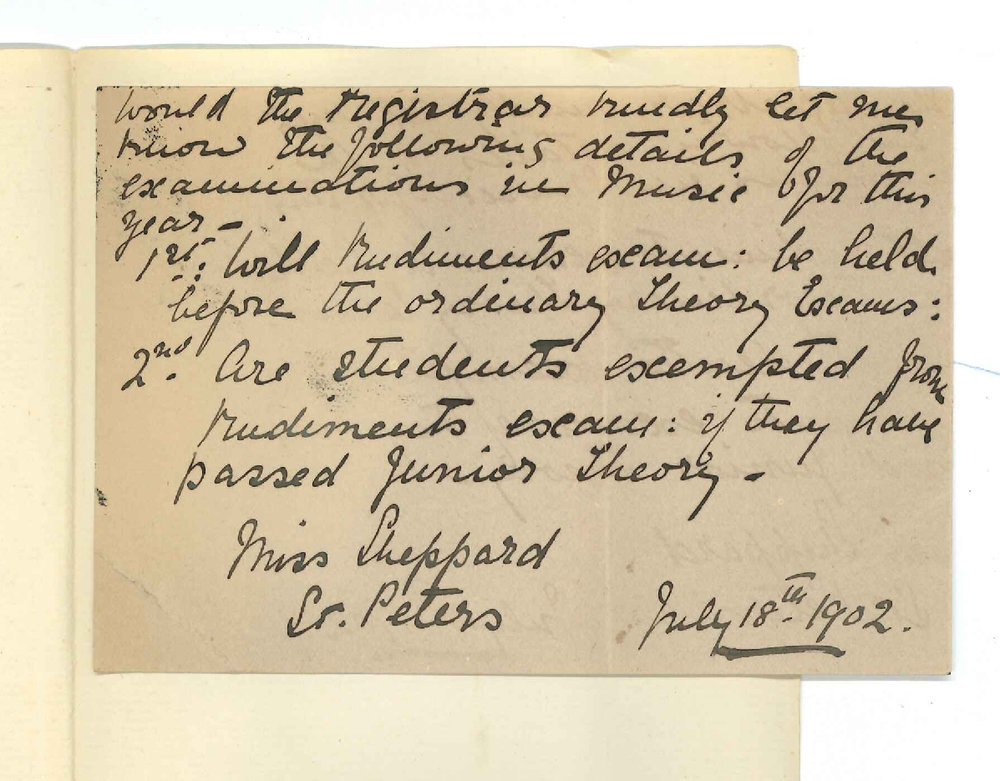 Would the Registrar kindly let me
know the following details of the
examinations in Music for this
year -
1st: Will Rudiments exam: be held
before the ordinary Theory Exams:
2nd. Are students exempted from
Rudiments exam: if they have
passed Junior Theory -
Miss Sheppard
St. Peters
July 18th 1902.